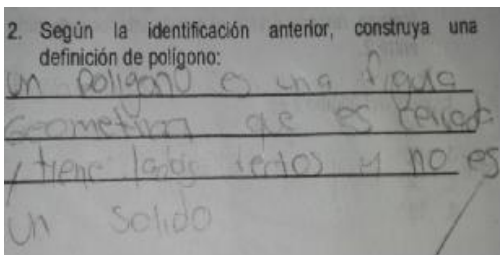 2. Según la identificación anterior, construya una
definición de polígono:
un poligono es una figura
Geometrica que es cerrada
y tiene lados rectos y no es
un solido